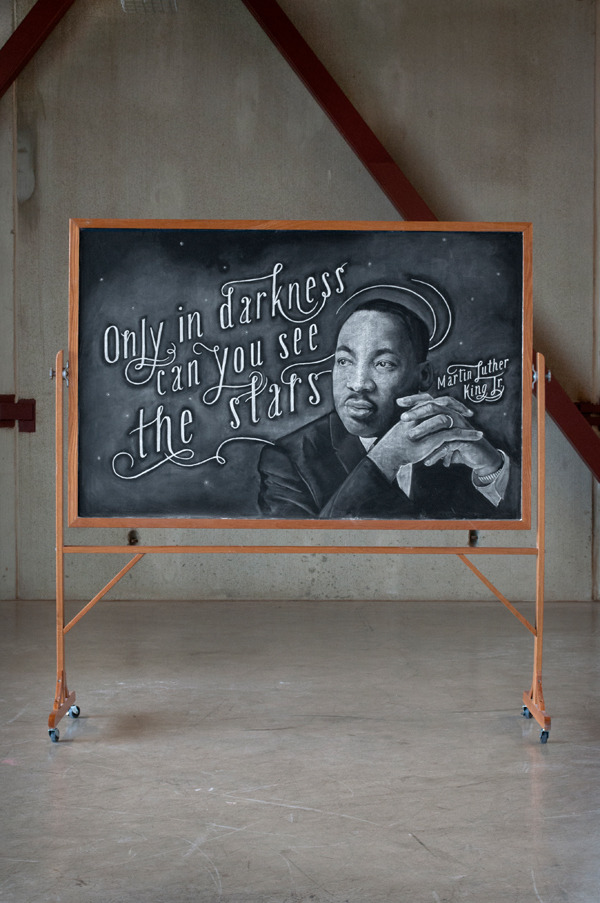 Only in darkness
can you see
the stars
Martin Luther
King Jr